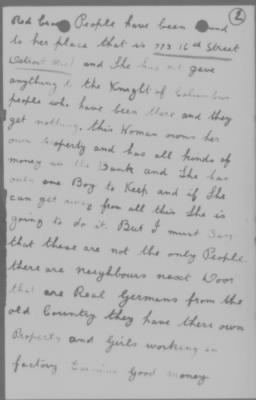 2
Red Cross People have been round
to her place that is 773 16th Street
Detroit and She has not gave
anything to the Knight of Columbus
people who have been there and they
get nothing, this Woman owns her
own Property and has all kinds of
money in the Bank and She has
only one Boy to Keep and if She
can get away from all this She is
going to do it. But I must Say
that these are not the only People.
there are neighbours next Door
that are Real Germans from the
old Country they have there own
Property and Girls working in
factory Earning Good money